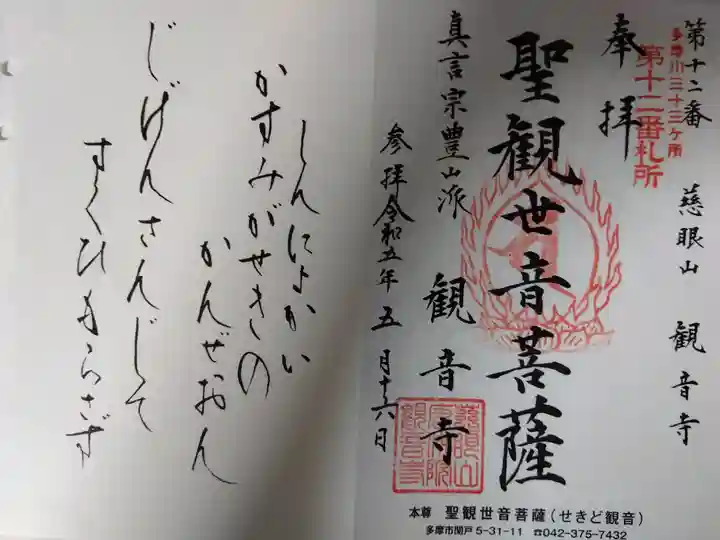 第十二番　慈眼山　観音寺
多摩川三十三ヶ所
第十二番札所
奉拝
聖観世音菩薩
真言宗豊山派　観音寺
参拝令和五年五月十六日
本尊　聖観世音菩薩(せきど観音)
多摩市関戸5-31-11　☎042-375-7432
しんによかい
かすみがせきの
かんぜおん
じげんさんじして
すくひもらさず